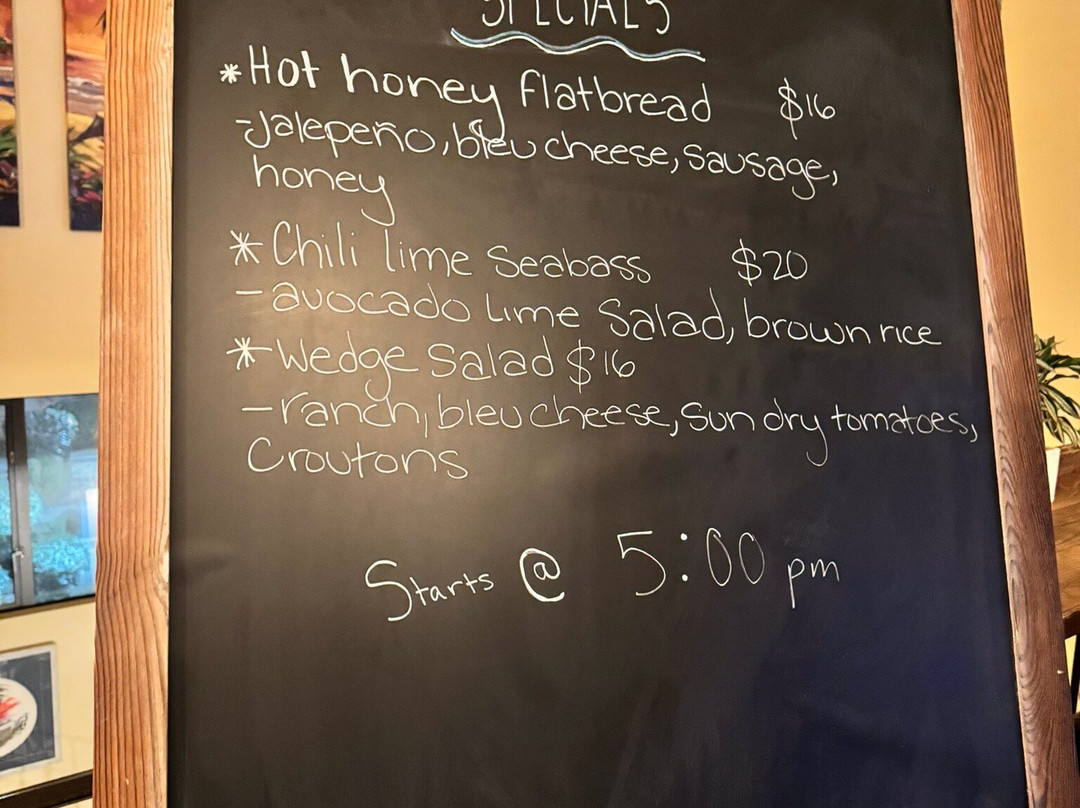 SPECIALS
*Hot honey flatbread $16
-Jalepeño, bleu cheese, sausage,
honey
*Chili lime Seabass $20
-avocado lime Salad, brown rice
*Wedge Salad $16
-ranch, bleu cheese, sun dry tomatoes,
Croutons
Starts @ 5:00 pm